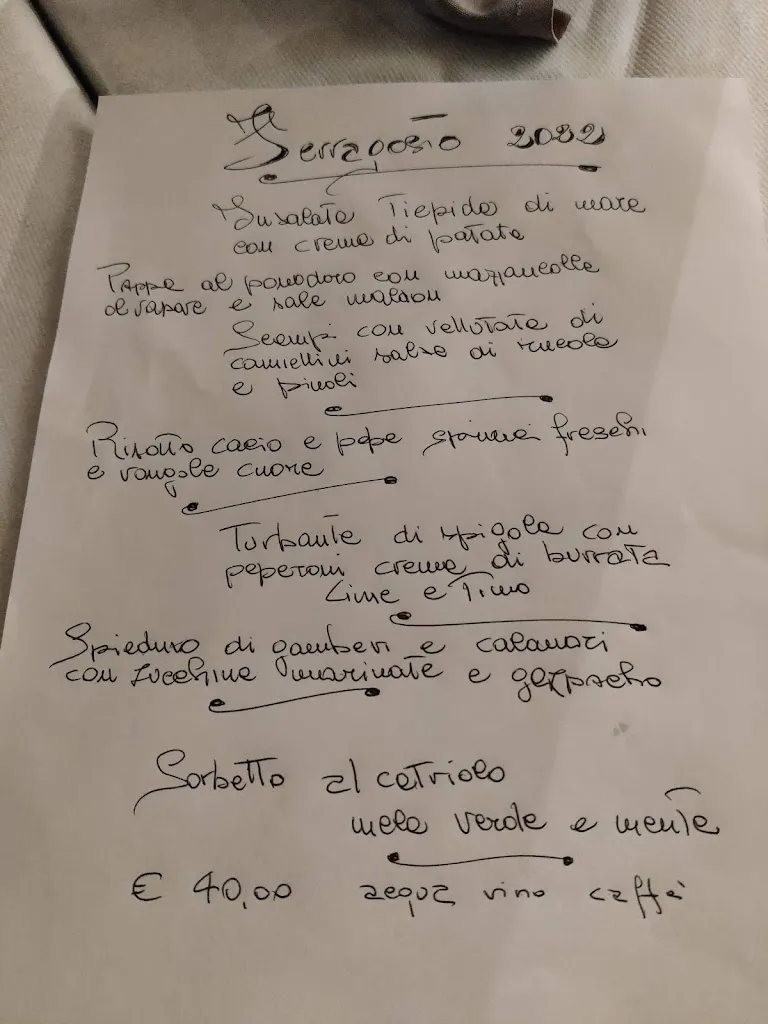 Ferragosto 2022
Insalata Tiepida di mare
con crema di patate
Pappa al pomodoro con mazzancolle
al vapore e sale maldon
Scampi con vellutata di
cannellini salsa di rucola
e pinoli
Risotto cacio e pepe spinaci freschi
e vongole cuore
Turbante di spigola con
peperoni crema di burrata
Lime e Timo
Spieduno di gamberi e calamari
con zucchine marinate e gazpacho
Sorbetto al cetriolo
mela verde e menta
€ 40,00 acqua vino caffè